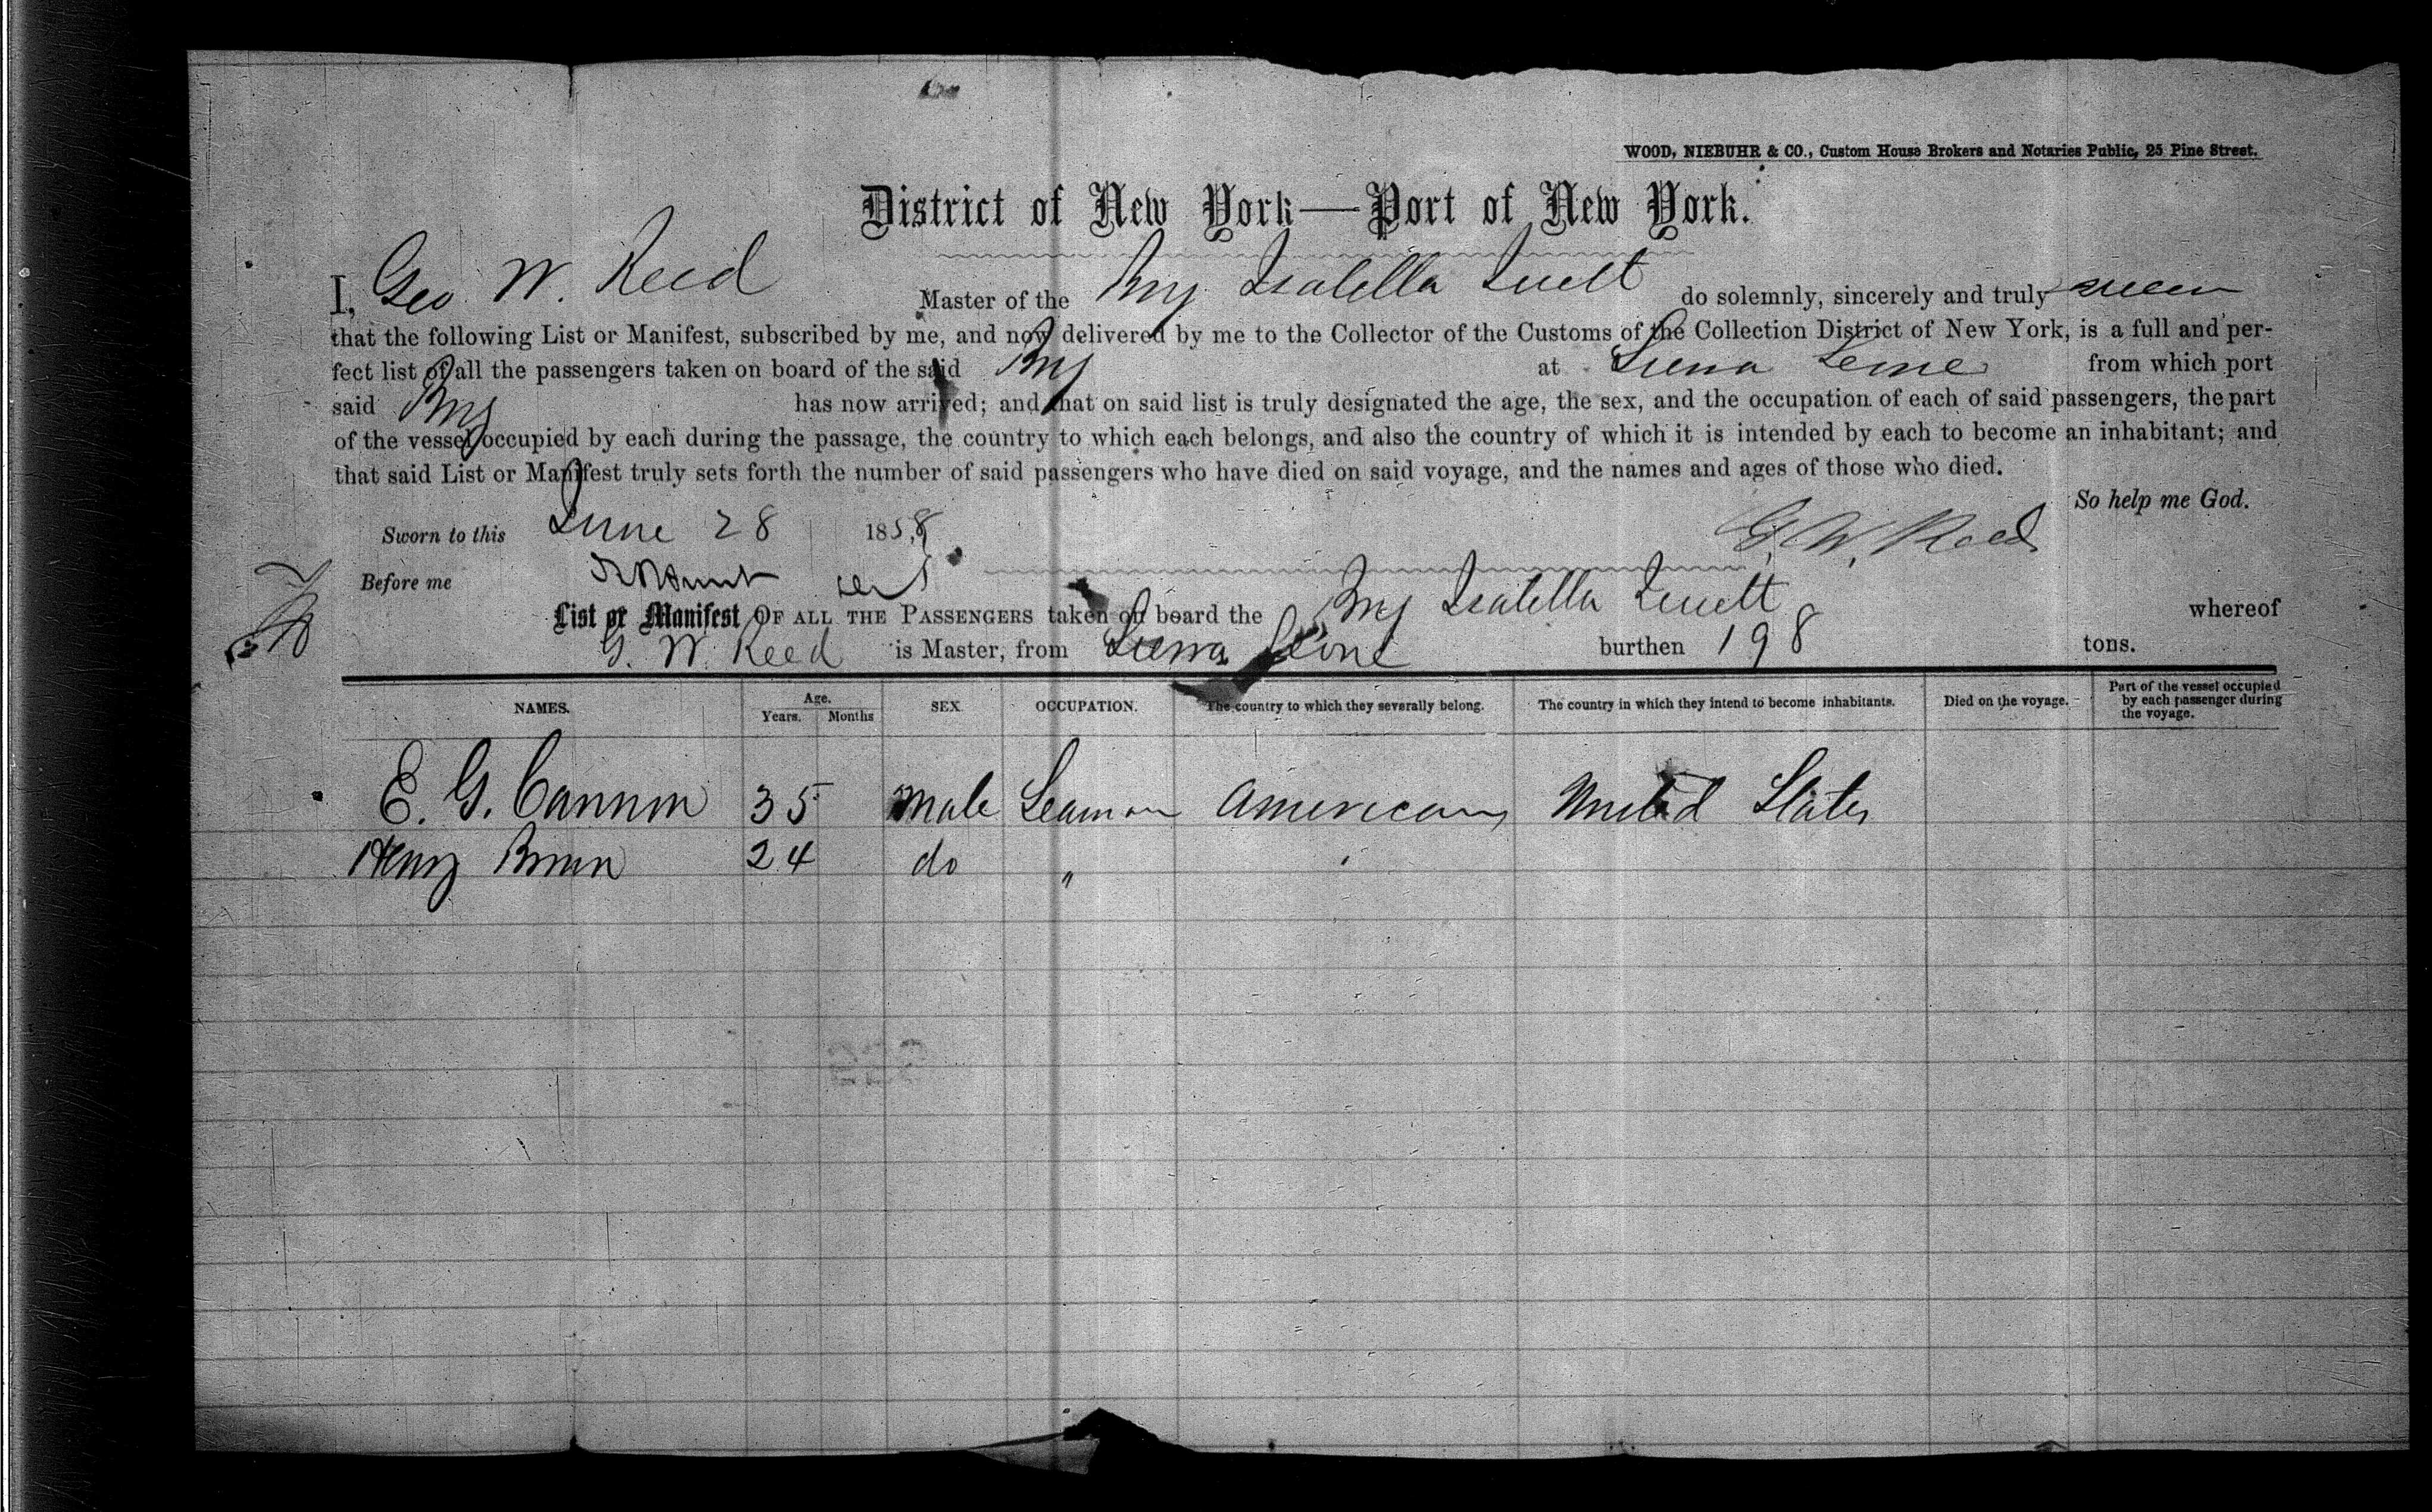 WOOD, NIEBUHR & CO., Custom House Brokers and Notaries Public, 25 Pine Street.
District of New York—Port of New York.
I, Geo W. Reed Master of the Brig Isabella do solemnly, sincerely and truly swear
that the following List or Manifest, subscribed by me, and now delivered by me to the Collector of the Customs of the Collection District of New York, is a full and per-
fect list of all the passengers taken on board of the said Brig at Sierra Leone from which port
said Brig has now arrived; and that on said list is truly designated the age, the sex, and the occupation of each of said passengers, the part
of the vessel occupied by each during the passage, the country to which each belongs, and also the country of which it is intended by each to become an inhabitant; and
that said List or Manifest truly sets forth the number of said passengers who have died on said voyage, and the names and ages of those who died.
So help me God.
Sworn to this June 28 1858 G. W. Reed
Before me
List or Manifest OF ALL THE PASSENGERS taken on board the Brig Isabella whereof
G. W. Reed is Master, from Sierra Leone burthen 198 tons.
NAMES. Age. Years. Months SEX. OCCUPATION. The country to which they severally belong. The country in which they intend to become inhabitants. Died on the voyage. Part of the vessel occupied by each passenger during the voyage.
E. G. Cannon 35 Male Seaman American United States
Henry Brown 24 do " '